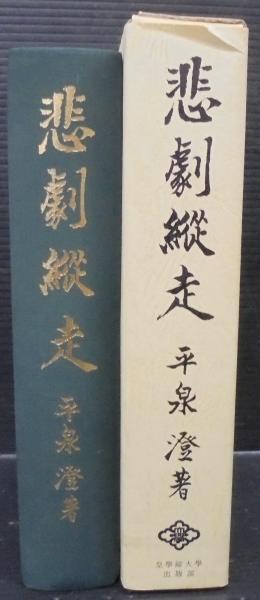 悲劇縱走
平泉澄著
悲劇縱走
平泉澄著
皇學館大學
出版部